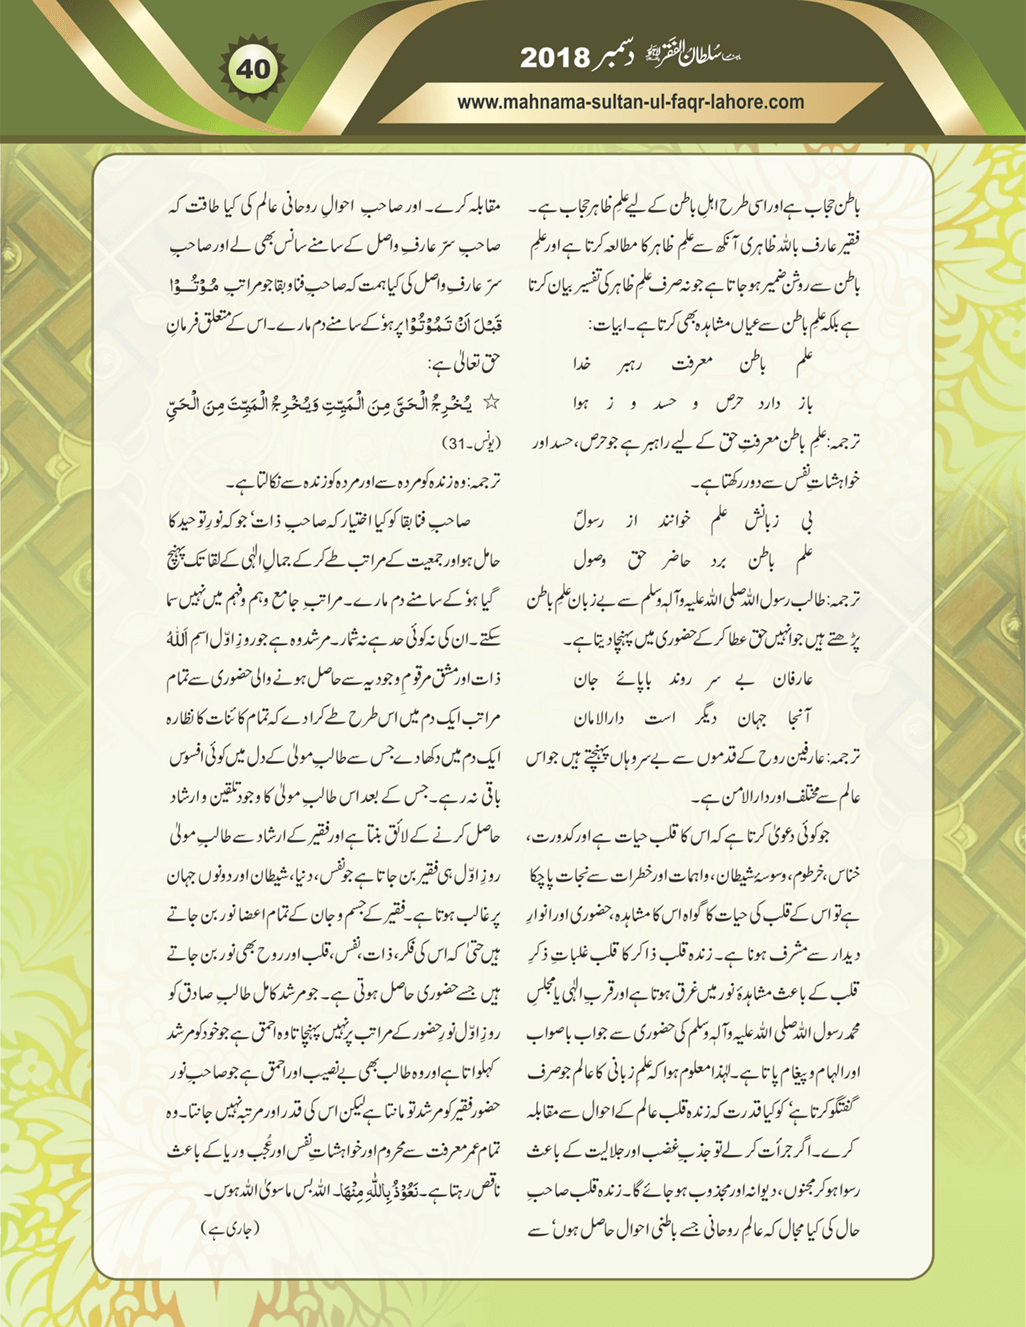 40
ماہنامہ سلطان الفقر لاہور دسمبر 2018
www.mahnama-sultan-ul-faqr-lahore.com
باطن حجاب ہے اور اسی طرح اہلِ باطن کے لیے علمِ ظاہر حجاب ہے۔
فقیر عارف باللہ ظاہری آنکھ سے علمِ ظاہر کا مطالعہ کرتا ہے اور علمِ
باطن سے روشن ضمیر ہو جاتا ہے جو نہ صرف علمِ ظاہر کی تفسیر بیان کرتا
ہے بلکہ علمِ باطن سے عیاں مشاہدہ بھی کرتا ہے۔ ابیات:
علم باطن معرفت رہبر خدا
باز دارد حرص و حسد و ز ہوا
ترجمہ: علمِ باطن معرفتِ حق کے لیے راہبر ہے جو حرص، حسد اور
خواہشاتِ نفس سے دور رکھتا ہے۔
بی زبانش علم خوانند از رسولؐ
علم باطن برد حاضر حق وصول
ترجمہ: طالب رسول اللہ صلی اللہ علیہ وآلہٖ وسلم سے بے زبان علمِ باطن
پڑھتے ہیں جو انہیں حق عطا کر کے حضوری میں پہنچا دیتا ہے۔
عارفان بے سر روند باپائے جان
آنجا جہان دیگر است دارالامان
ترجمہ: عارفین روح کے قدموں سے بے سر وہاں پہنچتے ہیں جو اس
عالم سے مختلف اور دارالامن ہے۔
جو کوئی دعویٰ کرتا ہے کہ اس کا قلب حیات ہے اور کدورت،
خناس، خرطوم، وسوسۂ شیطان، واہمات اور خطرات سے نجات پا چکا
ہے تو اس کے قلب کی حیات کا گواہ اس کا مشاہدہ، حضوری اور انوارِ
دیدار سے مشرف ہونا ہے۔ زندہ قلب ذاکر کا قلب غلباتِ ذکرِ
قلب کے باعث مشاہدۂ نور میں غرق ہوتا ہے اور قربِ الٰہی یا مجلسِ
محمد رسول اللہ صلی اللہ علیہ وآلہٖ وسلم کی حضوری سے جواب باصواب
اور الہام و پیغام پاتا ہے۔ لہٰذا معلوم ہوا کہ علمِ زبانی کا عالم جو صرف
گفتگو کرتا ہے‘ کو کیا قدرت کہ زندہ قلب عالم کے احوال سے مقابلہ
کرے۔ اگر جرأت کر لے تو جذبِ غضب اور جلالیت کے باعث
رسوا ہو کر مجنوں، دیوانہ اور مجذوب ہو جائے گا۔ زندہ قلب صاحبِ
حال کی کیا مجال کہ عالمِ روحانی جسے باطنی احوال حاصل ہوں‘ سے
مقابلہ کرے۔ اور صاحبِ احوالِ روحانی عالم کی کیا طاقت کہ
صاحبِ سرّ عارفِ واصل کے سامنے سانس بھی لے اور صاحبِ
سرّ عارفِ واصل کی کیا ہمت کہ صاحبِ فنا و بقا جو مراتب مُوْتُوْا
قَبْلَ اَنْ تَمُوْتُوْا پر ہو‘ کے سامنے دم مارے۔ اس کے متعلق فرمانِ
حق تعالیٰ ہے:
☆ يُخْرِجُ الْحَيَّ مِنَ الْمَيِّتِ وَيُخْرِجُ الْمَيِّتَ مِنَ الْحَيِّ
(یونس۔31)
ترجمہ: وہ زندہ کو مردہ سے اور مردہ کو زندہ سے نکالتا ہے۔
صاحبِ فنا بقا کو کیا اختیار کہ صاحبِ ذات‘ جو کہ نورِ توحید کا
حامل ہو اور جمعیت کے مراتب طے کر کے جمالِ الٰہی کے لقا تک پہنچ
گیا ہو‘ کے سامنے دم مارے۔ مراتبِ جامع وہم و فہم میں نہیں سما
سکتے۔ ان کی نہ کوئی حد ہے نہ شمار۔ مرشد وہ ہے جو روزِ اوّل اسمِ اَللّٰہُ
ذات اور مشق مرقومِ وجودیہ سے حاصل ہونے والی حضوری سے تمام
مراتب ایک دم میں اس طرح طے کرا دے کہ تمام کائنات کا نظارہ
ایک دم میں دکھا دے جس سے طالبِ مولیٰ کے دل میں کوئی افسوس
باقی نہ رہے۔ جس کے بعد اس طالبِ مولیٰ کا وجود تلقین و ارشاد
حاصل کرنے کے لائق بنتا ہے اور فقیر کے ارشاد سے طالبِ مولیٰ
روزِ اوّل ہی فقیر بن جاتا ہے جو نفس، دنیا، شیطان اور دونوں جہان
پر غالب ہوتا ہے۔ فقیر کے جسم و جان کے تمام اعضا نور بن جاتے
ہیں حتیٰ کہ اس کی فکر، ذات، نفس، قلب اور روح بھی نور بن جاتے
ہیں جسے حضوری حاصل ہوتی ہے۔ جو مرشد کامل طالبِ صادق کو
روزِ اوّل نورِ حضور کے مراتب پر نہیں پہنچاتا وہ احمق ہے جو خود کو مرشد
کہلواتا ہے اور وہ طالب بھی بے نصیب اور احمق ہے جو صاحبِ نور
حضور فقیر کو مرشد تو مانتا ہے لیکن اس کی قدر اور مرتبہ نہیں جانتا۔ وہ
تمام عمر معرفت سے محروم اور خواہشاتِ نفس اور عُجب و ریا کے باعث
ناقص رہتا ہے۔ نَعُوْذُ بِاللّٰهِ مِنْهَا۔ اللہ بس ماسویٰ اللہ ہوس۔
(جاری ہے)